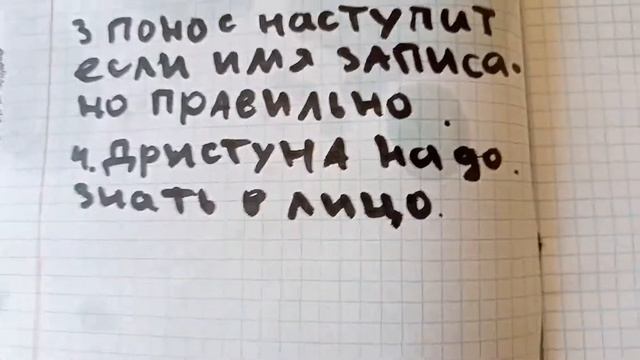 3 ПОНОС НАСТУПИТ
если имя ЗАПИСА.
но ПРАВИЛЬНО.
4. ДРИСТУНА НАДО.
Знать в лицо.